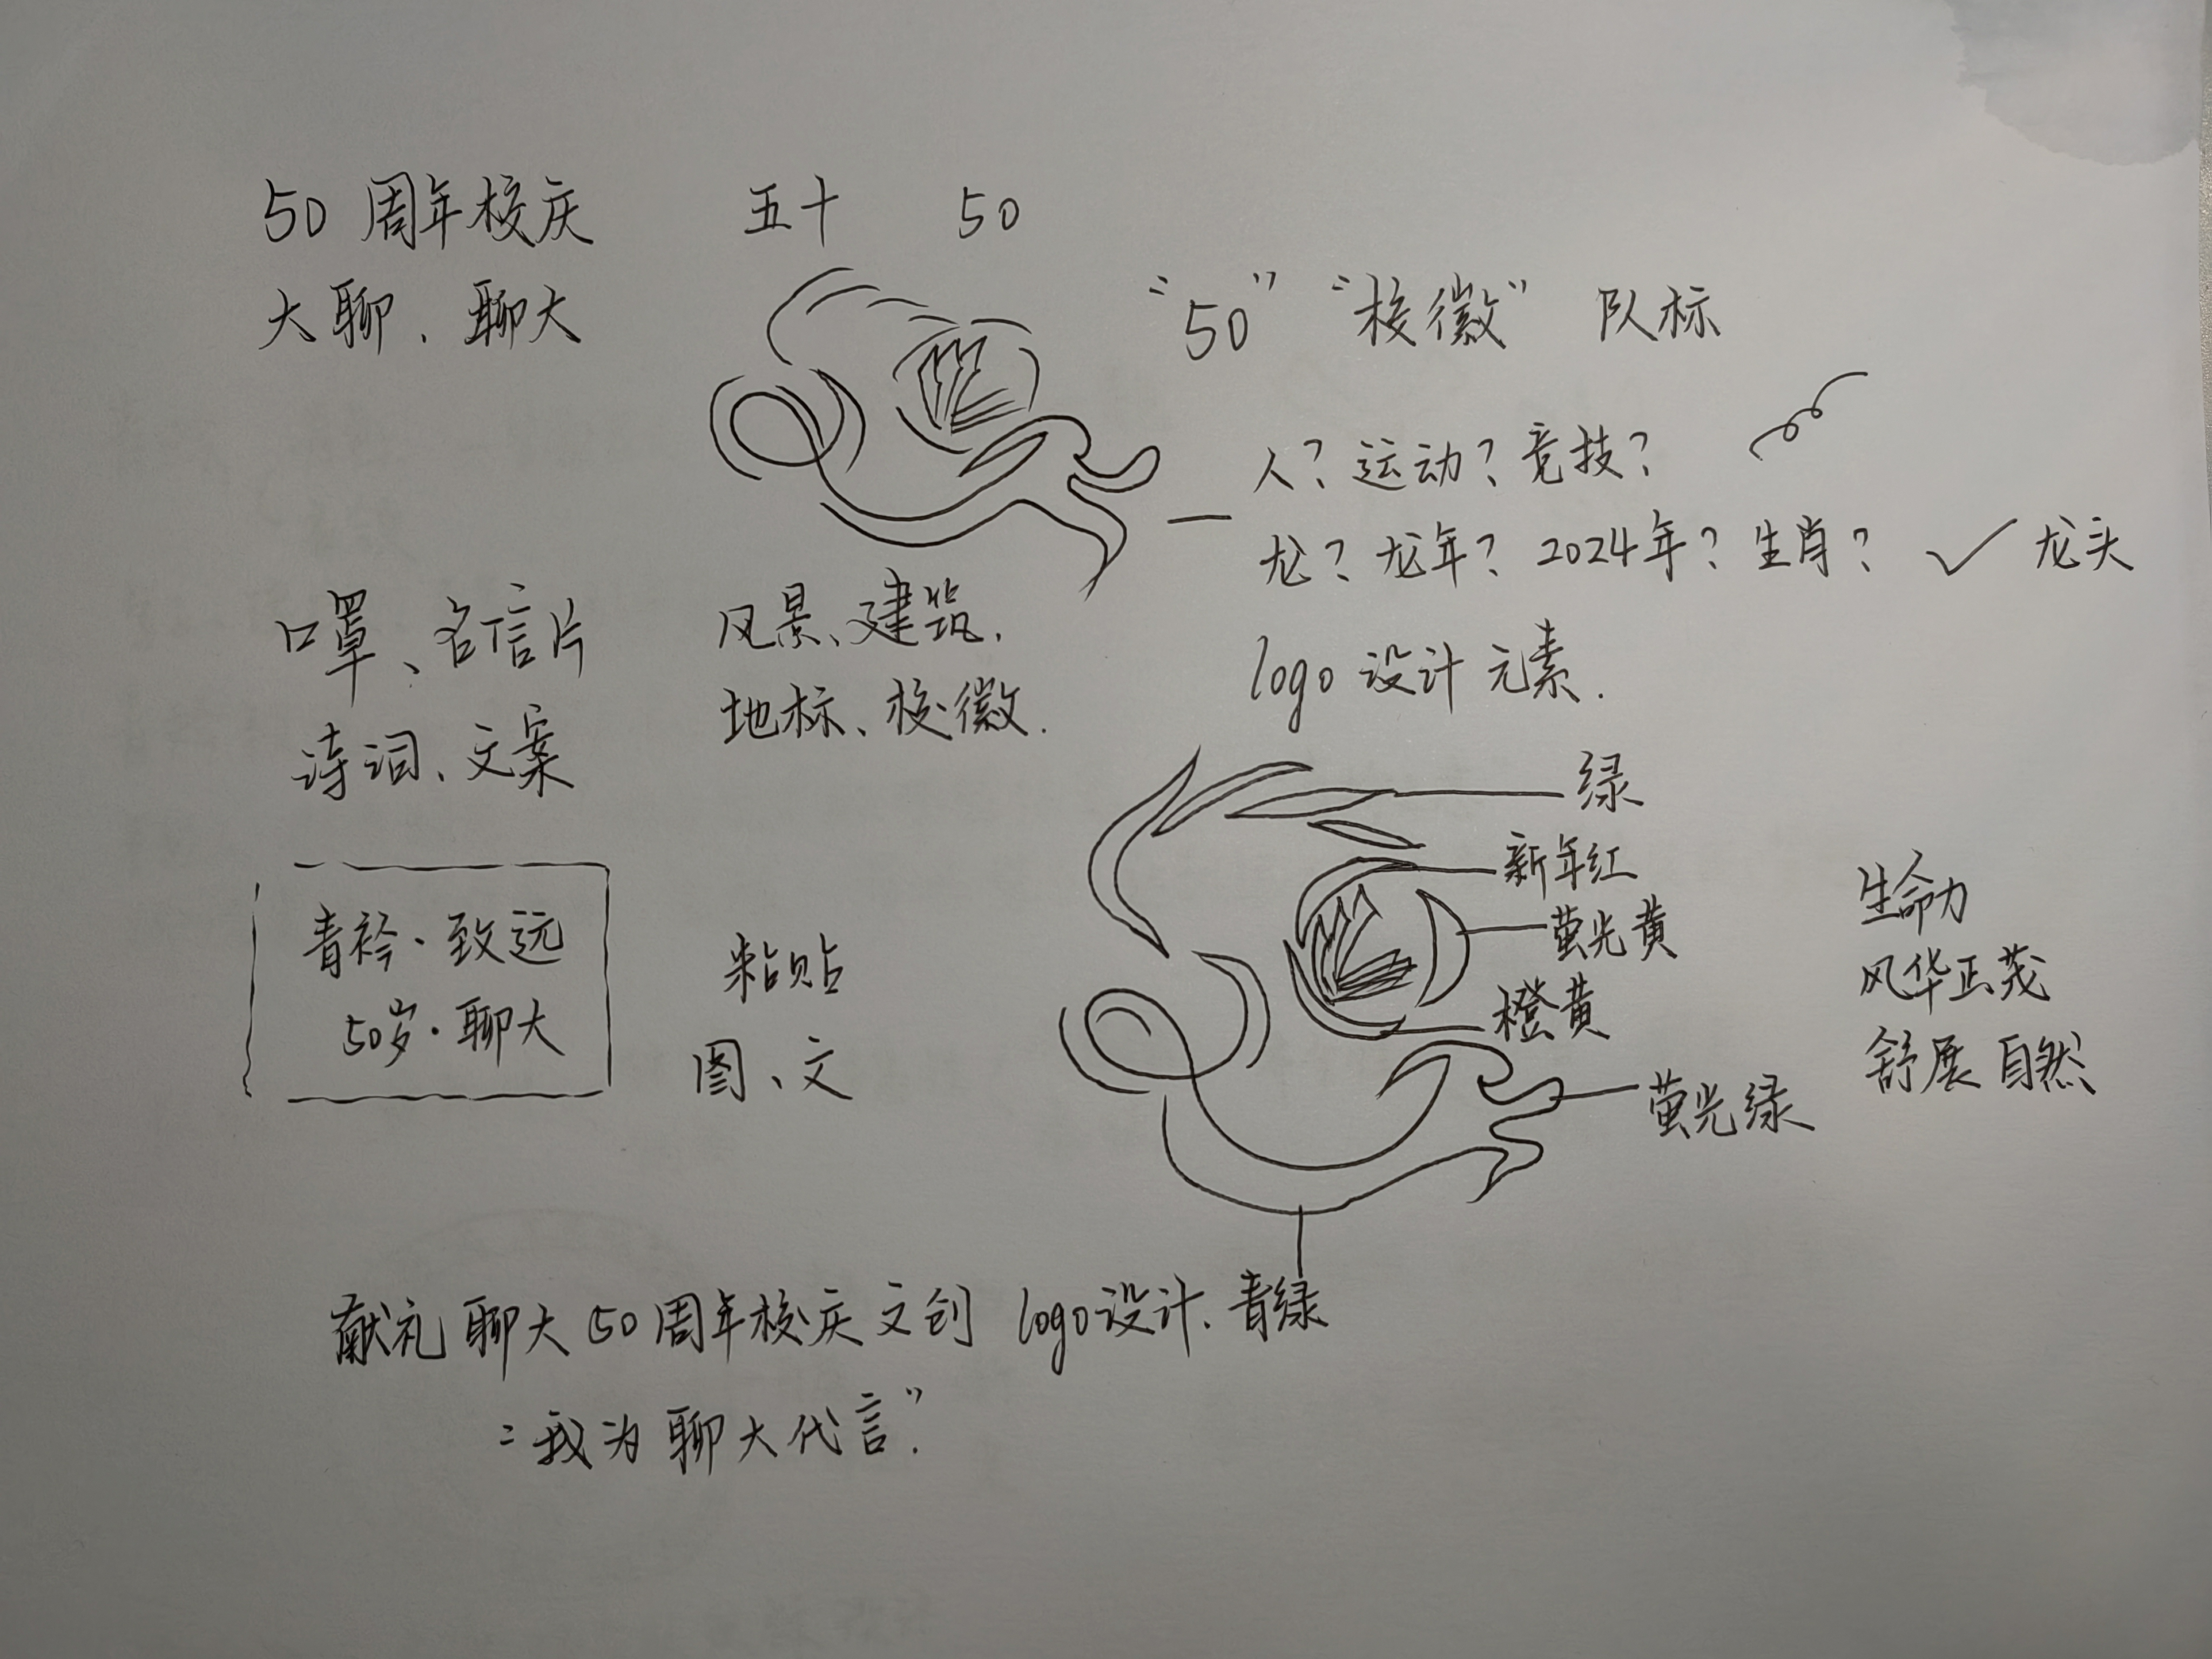 50周年校庆 五十 50
大聊、聊大
“50” “校徽” 队标
人？运动？竞技？
龙？龙年？2024年？生肖？ ✓ 龙头
logo 设计元素.
口罩、名信片
诗词、文案
风景、建筑、
地标、校徽.
绿
新年红
萤光黄
橙黄
萤光绿
青绿
生命力
风华正茂
舒展 自然
青衿·致远
50岁·聊大
粘贴
图、文
献礼聊大50周年校庆文创 logo设计.
“我为聊大代言”.